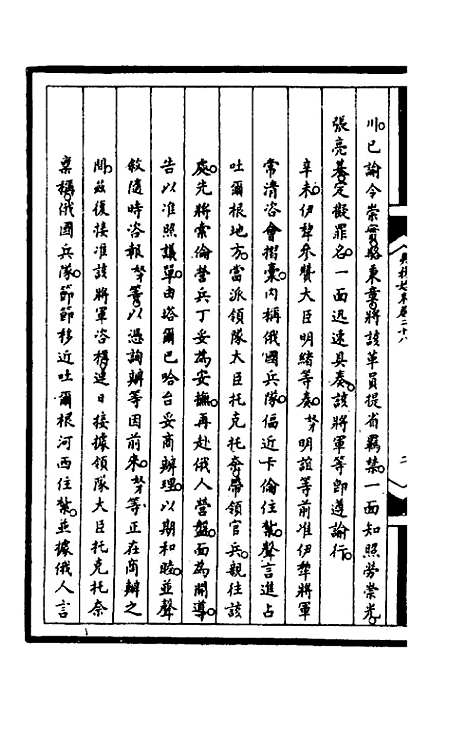 川已諭令崇實駱秉章將該革員提省羈禁一面知照勞崇光
張亮基定擬罪名一面迅速具奏該將軍等卽遵諭行
辛未伊犂參贊大臣明緒等奏努明誼等前准伊犂將軍
常清咨會摺稾內稱俄國兵隊偪近卡倫住紮聲言進占
吐爾根地方當派領隊大臣托克托奈帶領官兵親往該
處先將索倫營兵丁妥為安撫再赴俄人營盤面為開導
告以准照議單由塔爾巴哈台妥商辦理以期和睦並聲
敘隨時咨報努等以憑詢辦等因前來努等正在商辦之
間茲復接准該將軍咨稱連日接據領隊大臣托克托奈
稟稱俄國兵隊節節移近吐爾根河西住紮並據俄人言
二